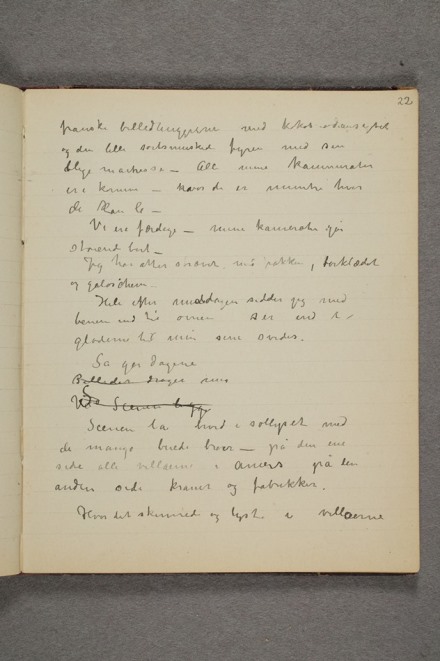 22
franske billedhuggerne med
og den lille sortsmuskede fyren med sin
blege maitresse — All mine kammerater
ere komne — naar de er hos
de kan le —
Vi ere færdige — mine kamerater går
bort —
Jeg har efter frakken, tørklædet
og galoscherne.
Hele efter middagen sidder jeg med
benen ind til ovnen ser ind i
gløderne til mine øine svides.
Så går dagene
Billeder drager
Scenen ligger
Scenen la hvid i sollyset med
de mange brede broer — på den ene
side alle villaerne i Aniers på den
anden side kraner og fabrikker.
Hvor det skinnede og lyste i villaerne